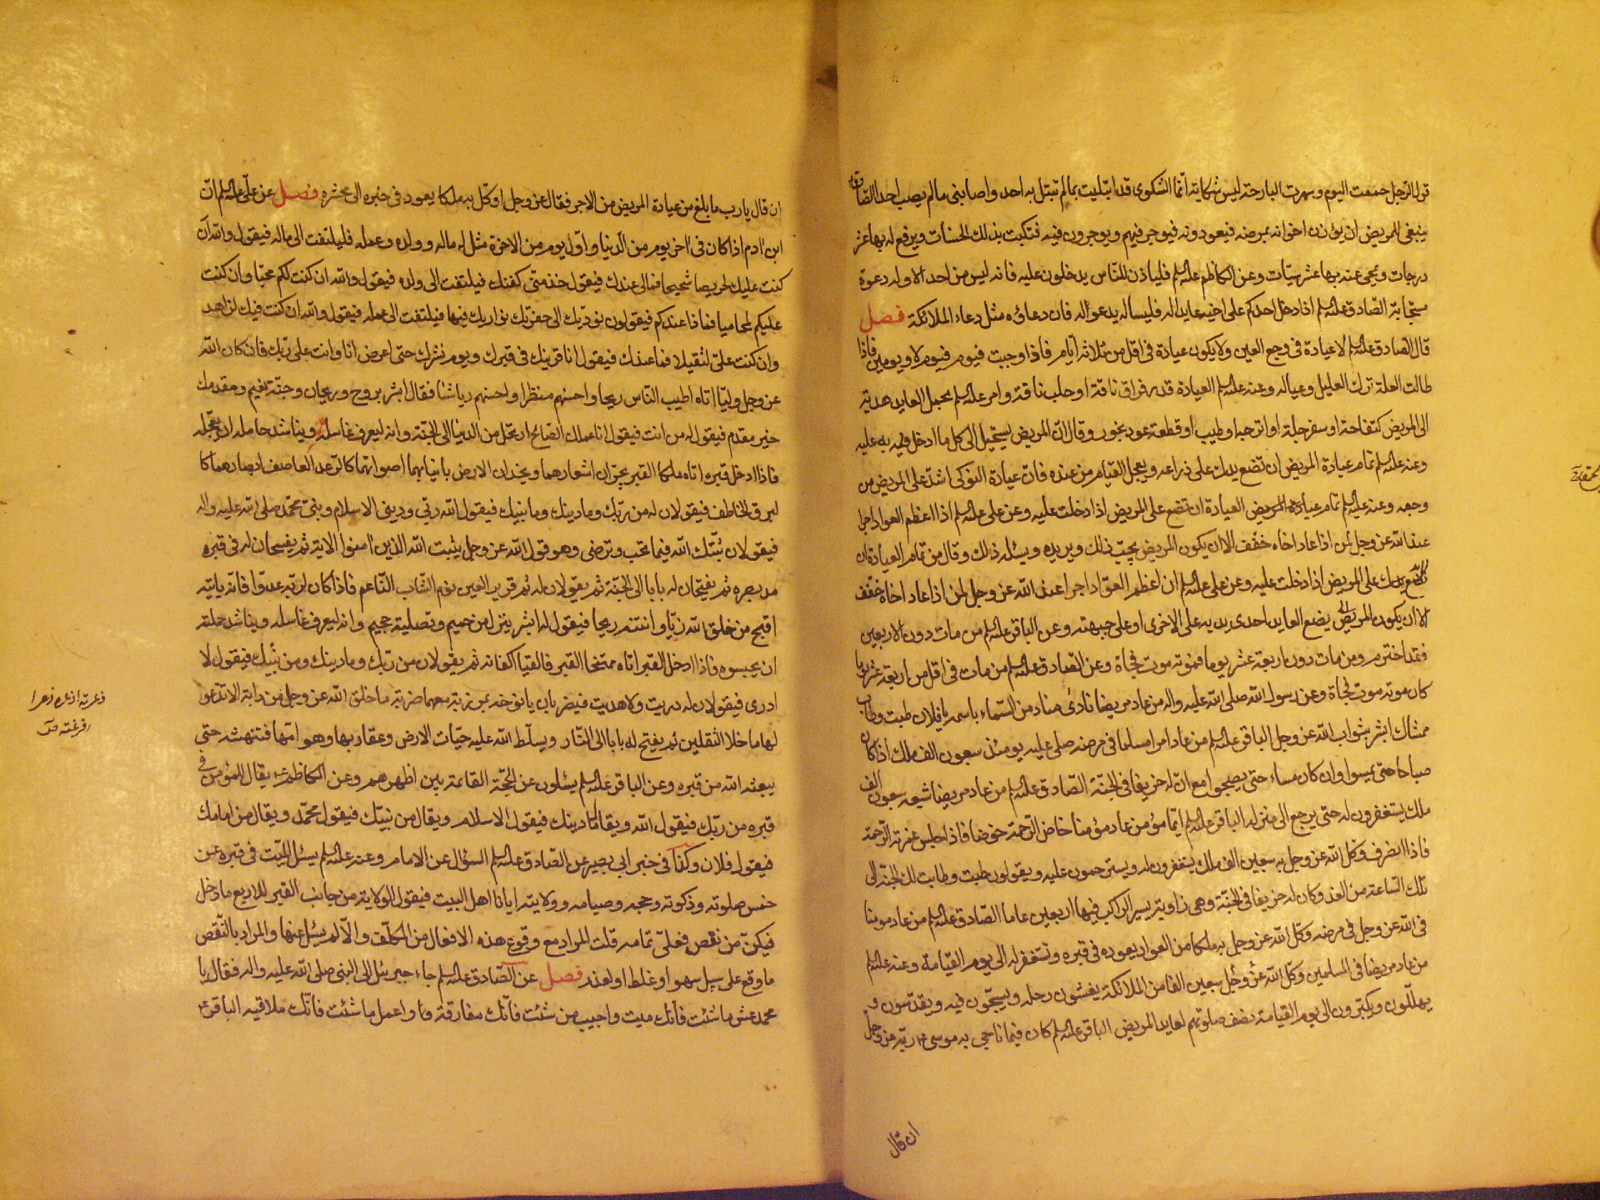 قول الرجل حممت اليوم وسهرت البارحة ليس شكاية انما الشكوى قد ابتليت بما لم يبتل به احد واصابنى ما لم يصب احد الصادق
ينبغى للمريض ان يؤذن اخوانه بمرضه فيعودونه فيوجر فيهم ويوجرون فيه فتكتب بذلك الحسنات ويرفع له بها عشر
درجات ويمحى عنه بها عشر سيئات وعن الكاظم علیه السلم فلياذن للناس يدخلون عليه فانه ليس من احد الا وله دعوة
مستجابة الصادق علیه السلم اذا دخل احدكم على اخيه عايدا له فليسأله يدعو له فان دعاؤه مثل دعاء الملائكة فصل
قال الصادق علیه السلم لا عيادة فى وجع العين ولا يكون عيادة فى اقل من ثلاثة ايام فاذا وجبت فيوم فيوم لا ويومين فاذا
طالت العلة ترك العليل وعياله وعنه علیه السلم العيادة قدر فواق ناقة او حلب ناقة وامر علیه السلم بحمل العايد هدية
الى المريض كتفاحة او سفرجلة او اترجة او طيب او قطعة عود بخور وقال ان المريض يستحيل الى كل ما ادخل به عليه
وعنه علیه السلم تمام عيادة المريض ان تضع يدك على ذراعه ويعجل القيام من عنده فان عيادة النوكى اشد على المريض من
وجعه وعنه علیه السلم تمام العيادة ان تضع على المريض اذا دخلت عليه وعن على علیه السلم ان اعظم العواد اجرا
عند الله عز وجل لمن اذا عاد اخاه خفف الا ان يكون المريض يحب ذلك ويريده ويسئله ذلك وقال من تمام العيادة ان
تضع يدك على المريض اذا دخلت عليه وعن على علیه السلم ان اعظم العواد اجرا عند الله عز وجل لمن اذا عاد اخاه خفف
الا ان يكون المريض يضع العايد احدى يديه على الاخرى او على جبهته وعن الباقر علیه السلم من مات دون الاربعين
فقد اخترم ومن مات دون اربعة عشر يوما فموته موت فجأة وعن الصادق علیه السلم من مات فى اقل من اربعة عشر يوما
كان موته موت فجأة وعن رسول الله صلى الله عليه واله من عاد مريضا نادى مناد من السماء باسمه يا فلان طبت وطاب
ممشاك ابشر بثواب الله عز وجل الباقر علیه السلم من عاد امرا مسلما فى مرضه صلى عليه يومئذ سبعون الف ملك اذا كان
صباحا حتى يمسوا وان كان مساء حتى يصبحوا مع ان له خريفا فى الجنة الصادق علیه السلم من عاد مريضا شيعه سبعون الف
ملك يستغفرون له حتى يرجع الى منزله الباقر علیه السلم ايما مؤمن عاد مؤمنا خاض الرحمة خوضا فاذا جلس غمرته الرحمة
فاذا انصرف وكل الله عز وجل به سبعين الف ملك يستغفرون له ويسترحمون عليه ويقولون طبت وطابت لك الجنة الى
تلك الساعة من الغد وكان له خريفا فى الجنة وهى زاوية يسير الراكب فيها اربعين عاما الصادق علیه السلم من عاد مومنا
فى الله عز وجل فى مرضه وكل الله عز وجل به ملكا من العواد يعوده فى قبره وتستغفر له الى يوم القيامة وعنه علیه السلم
من عاد مريضا من المسلمين وكل الله عز وجل سبعين الفا من الملائكة يغشون رحله ويسبحون فيه ويقدسون و
يهللون ويكبرون الى يوم القيامة نصف صلوتهم لعايد المريض الباقر علیه السلم كان فيما ناجى به موسى ع ربه عز وجل
ان قال
ان قال يا رب ما بلغ من عيادة المريض من الاجر فقال عز وجل اوكل به ملكا يعوده فى قبره الى محشره فصل عن على علیه السلم ان
ابن ادم اذا كان فى اخر يوم من الدنيا واول يوم من الاخرة مثل له ماله وولده وعمله فليلتفت الى ماله فيقول والله ان
كنت عليك لحريصا شحيحا فمالى عندك فيقول خذ منى كفنك فيلتفت الى ولده فيقول والله ان كنت لكم محبا وان كنت
عليكم لمحاميا فماذا عندكم فيقولون نؤديك الى حفرتك نواريك فيها فيلتفت الى عمله فيقول والله ان كنت فيك لزاهد
وان كنت على لثقيلا فما عندك فيقول انا قرينك فى قبرك ويوم نشرك حتى اعرض انا وانت على ربك فان كان الله
عز وجل وليا اتاه اطيب الناس ريحا واحسنهم منظرا واحسنهم رياشا فقال ابشر بروح وريحان وجنة نعيم ومقدمك
خير مقدم فيقول له من انت فيقول انا عملك الصالح ارتحل من الدنيا الى الجنة وانه ليعرف غاسله ويناشد حامله ان يعجله
فاذا ادخل قبره اتاه ملكا القبر يجران اشعارهما ويخدان الارض بانيابهما اصواتهما كالرعد العاصف ابصارهما كا
لبرق الخاطف فيقولان له من ربك وما دينك وما نبيك فيقول الله ربى ودينى الاسلام ونبى محمد صلى الله عليه واله
فيقولان ثبتك الله فيما تحب وترضى وهو قول الله عز وجل يثبت الله الذين امنوا الاية ثم يفسحان له فى قبره
مد بصره ثم يفتحان له بابا الى الجنة ثم يقولان له نم قرير العين نوم الشاب الناعم فاذا كان لربه عدوا فانه ياتيه
اقبح من خلق الله زيا وانتنه ريحا فيقول له ابشر بنزل من حميم وتصلية جحيم وانه ليعرف غاسله ويناشد حملته
ان يحبسوه فاذا ادخل القبر اتاه ممتحنا القبر فالقيا اكفانه ثم يقولان من ربك وما دينك ومن نبيك فيقول لا
ادرى فيقولان له لا دريت ولا هديت فيضربان يافوخه بمرزبة معهما ضربة ما خلق الله عز وجل من دابة الا تذعر
لها ما خلا الثقلين ثم يفتح له بابا الى النار ويسلط الله عليه حيات الارض وعقاربها وهوامها فتنهشه حتى
يبعثه الله من قبره وعن الباقر علیه السلم يسئلون عن الحجة القائمة بين اظهرهم وعن الكاظم ع يقال للمؤمن فى
قبره من ربك فيقول الله ويقال ما دينك فيقول الاسلام ويقال من نبيك فيقول محمد ويقال من امامك
فيقول فلان وكذا فى خبر ابى بصير عن الصادق علیه السلم السؤال عن الامام وعنه علیه السلم يسئل الميت فى قبره عن
خمس صلوته وزكوته وحجه وصيامه وولايته ايانا اهل البيت فيقول الولاية من جانب القبر للاربع ما دخل
فيكن من نقص فعلى تمامه قلت المراد مع وقوع هذه الافعال من المكلف والا لم يسئل عنها والمراد بالنقص
ما وقع على سبيل سهو او غلط او لعذر فصل عن الصادق علیه السلم جاء جبرئيل الى النبى صلى الله عليه واله فقال يا
محمد عش ما شئت فانك ميت واحبب من شئت فانك مفارقه واعمل ما شئت فانك ملاقيه الباقر ع
ذعرته اذعره ذعرا
افزعته